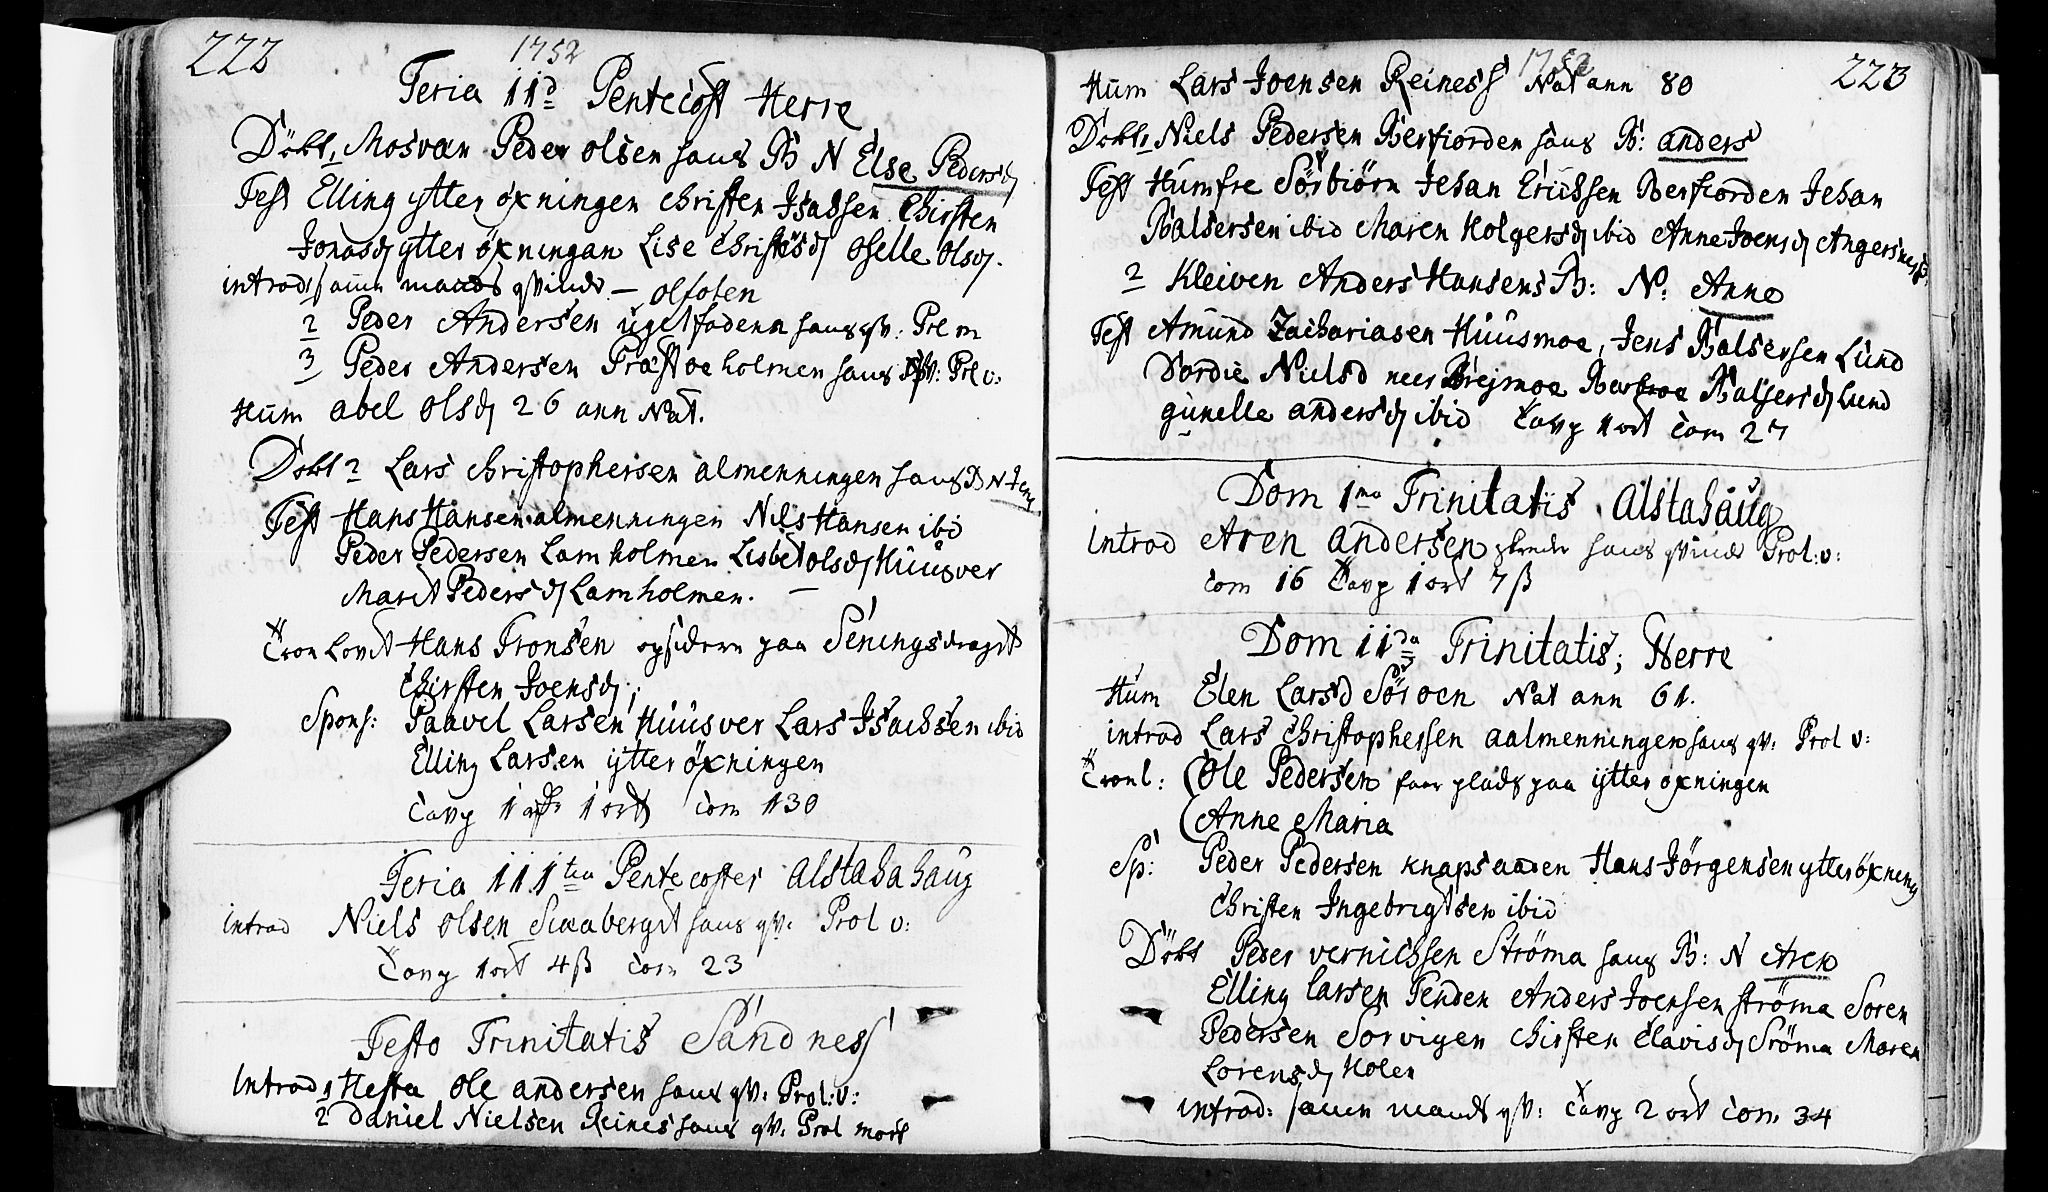 222
1752
Feria 11d Pentecost Herre
Döbt 1 Mosvær Peder Olsen hans B N Else Pedersd
Test Elling ytter öxningen Christen Isachsen Chirsten
Jonasd ytter öxningan Lise Christensd Oselle Olsd.
introd samme mands qvinde – olfoten
2 Peder Andersen hans qv: Prl m
3 Peder Andersen Træstoeholmen hans qv: Prl v:
Hum abel Olsd 26 ann Nat.
Döbt 2 Lars Christophersen almenningen hans B N Jens
Test Hans Hansen almenningen Nils Hansen ibid
Peder Pedersen Lamholmen Lisbet Olsd Huusver
Marit Pedersd Lamholmen. –
Tron Lovet Hans Tronsen opsidern paa
Chirsten Joensd;
Spons: Paavel Larsen Huusver Lars Isachsen ibid
Elling Larsen ytter öxningen
Tavp 1 1 ort Com 130
Feria 111tia Pentecostes Alstahahaug
introd Niels Olsen hans qv. Prol v:
Tavp 1 ort 4 ß Com 23
Festo Trinitatis Sandness
Introd 1 Hestad Ole andersen hans qv: Prol: v:
2 Daniel Nielsen Reines hans qv: Prol mort
1752
223
Hum Lars Joensen Reiness Nat ann 80
Döbt 1 Niels Pedersen Berfiorden hans B: anders
Test Humfre Sörbiörn Jehan Erichsen Berfiorden Jehan
Balsersen ibid Maren Holgersd ibid Anne Joensd Angersness
2 Kleiven Anders Hansens B: N: Anne
Test Amund Zachariasen Huusmoe, Jens Balsersen Lund
Dordie Nielsd Brejmoe Balsersd Lund
gunelle andersd ibid Tavp 1 ort Com 27
Dom 1ma Trinitatis Alstahaug
Introd Aren andersen hans qvinde Prol: v:
Com 16 Tavp 1 ort 7 ß
Dom 11da Trinitatis; Herre
Hum Elen Larsd Söroen Nat ann 61.
introd Lars Christophersen aalmenningen hans qv: Prol v:
Tronl: (Ole Pedersen faar plads paa ytter öxningen
(Anne Maria
Sp: Peder Pedersen knapsaaden Hans Jörgensen ytter öxning
Christen Ingebrigtsen ibid
Döbt Peder vernichsen Ströma hans B: N Aren
Elling Larsen Tenden Anders Joensen ströma Soren
Pedersen Sorvigen Chirsten Elavisd Ströma Maren
Lorensd Holen
introd: samme mands qv: Tavp 2 ort Com 34